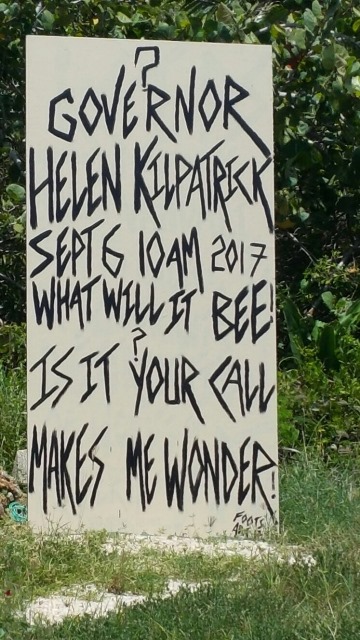 ?
GOVERNOR
HELEN KILPATRICK
SEPT 6 10AM 2017
WHAT WILL IT BEE!
?
IS IT YOUR CALL
MAKES ME WONDER!
FOOTS